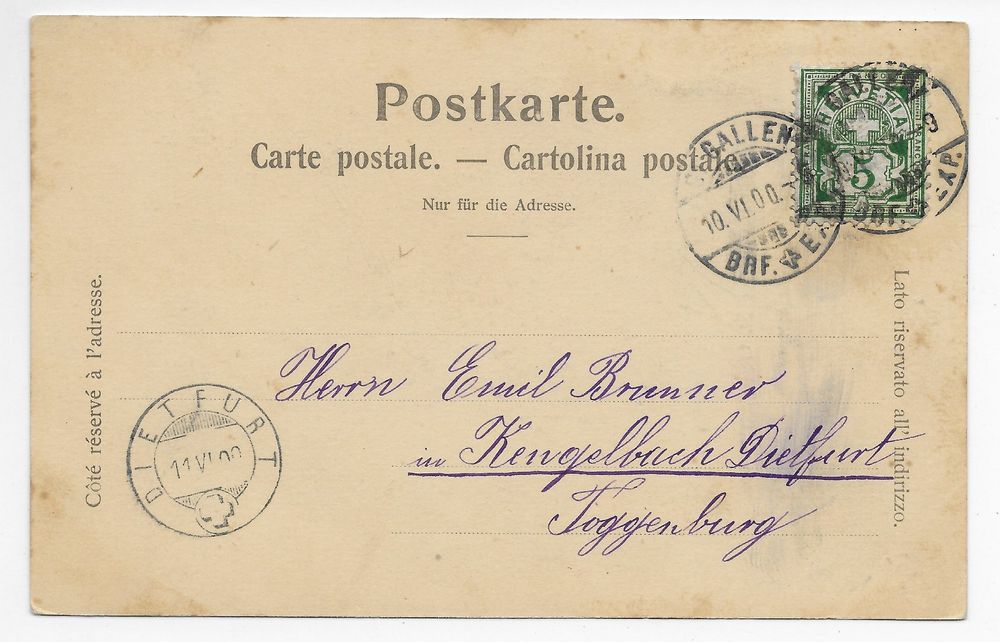 Postkarte.
Carte postale. — Cartolina postale.
Nur für die Adresse.
GALLEN
10.VI.00.
BRF.
HELVETIA
FRANCO
5
BRF. EXP.
Côté réservé à l'adresse.
Lato riservato all'indirizzo.
Herrn Emil Brunner
in Kengelbach Dietfurt
Toggenburg
DIETFURT
11.VI.00